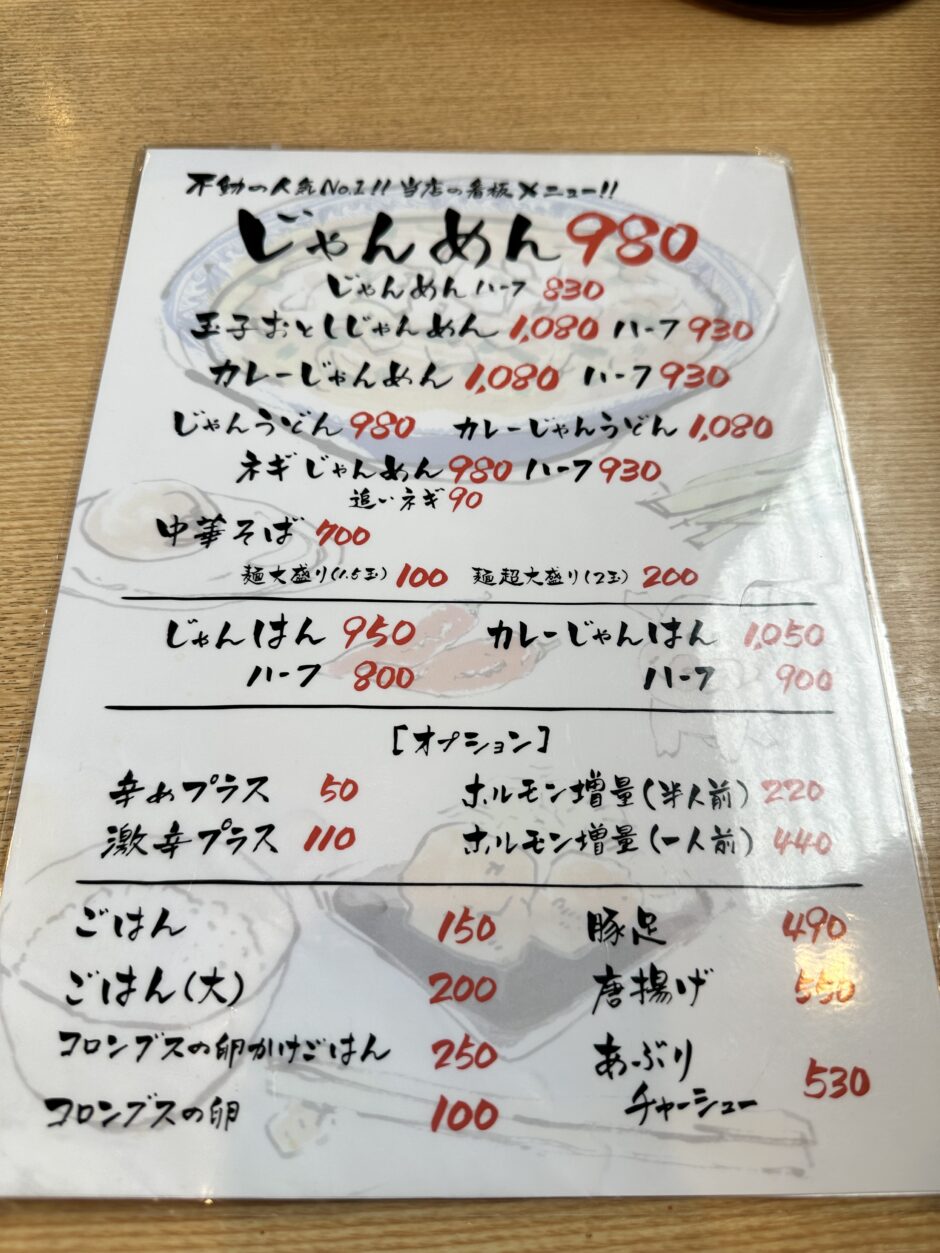 不動の人気No.1!! 当店の看板メニュー!!
じゃんめん 980
じゃんめんハーフ 830
玉子おとしじゃんめん 1,080 ハーフ 930
カレーじゃんめん 1,080 ハーフ 930
じゃんうどん 980 カレーじゃんうどん 1,080
ネギじゃんめん 980 ハーフ 930
追いネギ 90
中華そば 700
麺大盛り(1.5玉) 100 麺超大盛り(2玉) 200
じゃんはん 950 カレーじゃんはん 1,050
ハーフ 800 ハーフ 900
[オプション]
辛めプラス 50 ホルモン増量(半人前) 220
激辛プラス 110 ホルモン増量(一人前) 440
ごはん 150 豚足 490
ごはん(大) 200 唐揚げ 550
コロンブスの卵かけごはん 250 あぶり
チャーシュー 530
コロンブスの卵 100